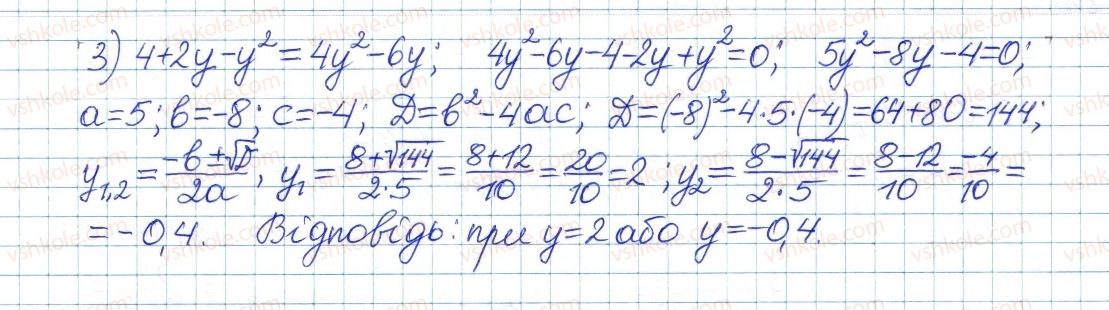 3) 4+2y-y²=4y²-6y; 4y²-6y-4-2y+y²=0; 5y²-8y-4=0;
a=5; b=-8; c=-4; D=b²-4ac; D=(-8)²-4·5·(-4)=64+80=144;
y₁,₂=(-b±√D)/2a; y₁=(8+√144)/(2·5)=(8+12)/10=20/10=2; y₂=(8-√144)/(2·5)=(8-12)/10=-4/10=
=-0,4. Відповідь: при y=2 або y=-0,4.